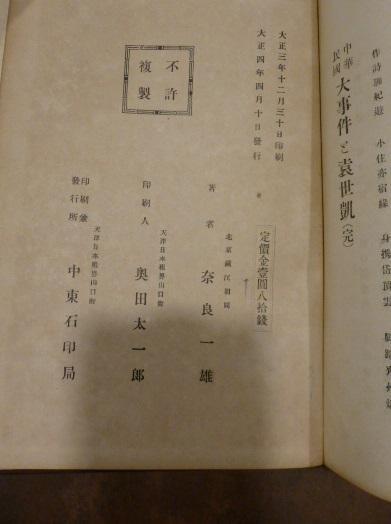 作詩聊紀遊 小住亦宿緣
中華民國 大事件と袁世凱(完)
大正三年十二月三十日印刷
大正四年四月十日發行
不許複製
定價金壹圓八拾錢
著者 奈良一雄
天津日本租界山口街
印刷人 奧田太一郎
天津日本租界山口街
印刷兼發行所 中東石印局